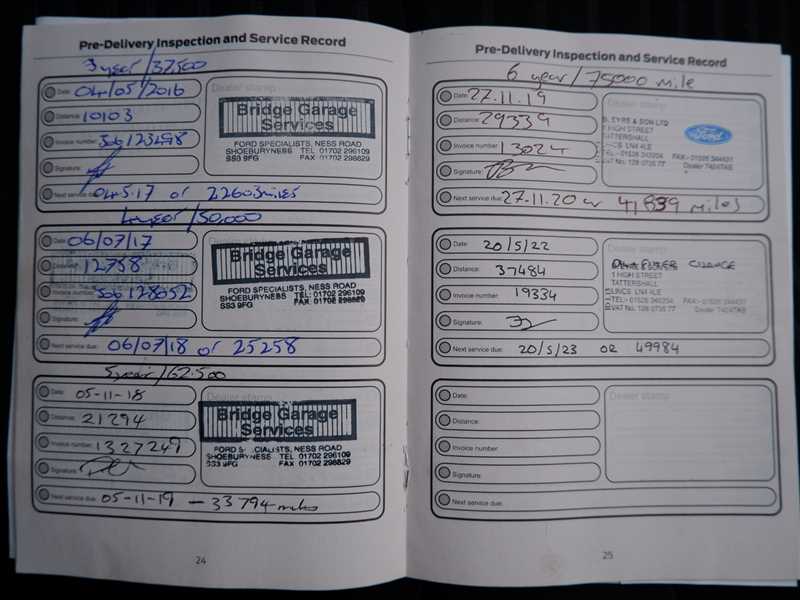 Pre-Delivery Inspection and Service Record
3 year/37500
Date: 04/05/2016
Distance: 10103
Invoice number: Job 123498
Signature:
Next service due: 04.5.17 or 22603 miles
Dealer stamp
Bridge Garage
Services
FORD SPECIALISTS, NESS ROAD
SHOEBURYNESS TEL: 01702 296109
SS3 9FG FAX 01702 296829
4 year/50,000
Date: 06/07/17
Distance: 12758
Invoice number: Job 128052
Signature:
Next service due: 06/07/18 or 25258
Bridge Garage
Services
FORD SPECIALISTS, NESS ROAD
SHOEBURYNESS TEL: 01702 296109
SS3 9FG FAX 01702 296829
5 year/62.500
Date: 05-11-18
Distance: 21294
Invoice number: 1327249
Signature:
Next service due: 05-11-19 - 33794 miles
Dealer stamp
Bridge Garage
Services
FORD SPECIALISTS, NESS ROAD
SHOEBURYNESS TEL: 01702 296109
SS3 9FG FAX 01702 296829
24
Pre-Delivery Inspection and Service Record
6 year/75000 mile
Date: 27.11.19
Distance: 29339
Invoice number: 13024
Signature:
Next service due: 27.11.20 or 41,839 miles
Dealer stamp
EYRE & SON LTD
1 HIGH STREET
TATTERSHALL
LINCS LN4 4LE
Ford
Date: 20/5/22
Distance: 37484
Invoice number: 19334
Signature:
Next service due: 20/5/23 OR 49984
FILTER CHANGE
1 HIGH STREET
TATTERSHALL
LINCS LN4 4LE
Date:
Distance:
Invoice number:
Signature:
Next service due:
Dealer stamp
25